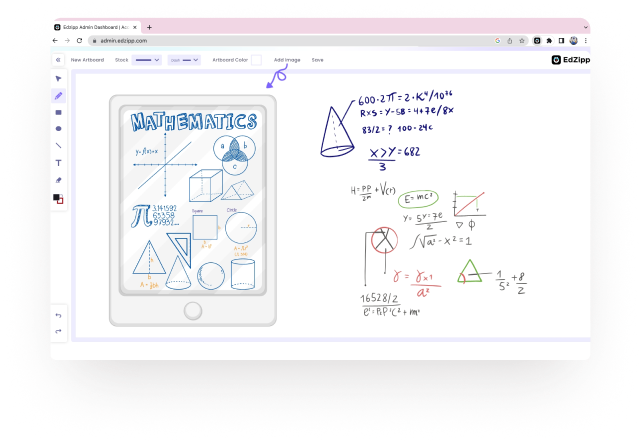 EdZipp Admin Dashboard | Acc
admin.edzipp.com
New Artboard Stock Artboard Color Add image Save
EdZipp
MATHEMATICS
y=f(x)=x
a b
c
π 3.141592
Square
Circle
A=½bh
600·2π=2·K⁴/10³⁶
R×S=Y-SB=4+7e/8x
83/2=? 100-24c
X>Y=682
3
H=PP/2m+V(r)
E=mc²
Y=5x-7e
2
∫√a²-x²=1
γ=γx1
a²
1/5²+8/2
16528/2